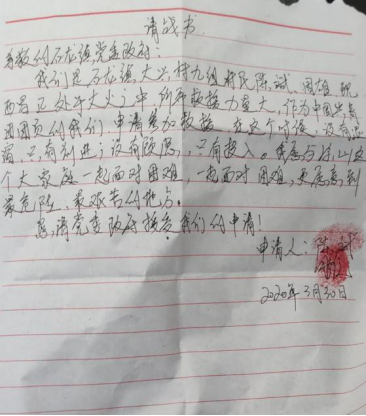 请战书
尊敬的石龙镇党委政府:
我们是石龙镇大兴村九组村民陈 、周雄,现
西昌正处于大火之中,所需救援力量大,作为中国共青
团团员的我们,申请参加救援,在这个时候,没有退
缩,只有前进;没有顾虑,只有投入。我愿与凉山这
个大家庭一起面对困难,一起面对困难,更愿意到
最危险、最艰苦的地方。
恳请党委政府接受我们的申请!
申请人:陈
2020年3月30日